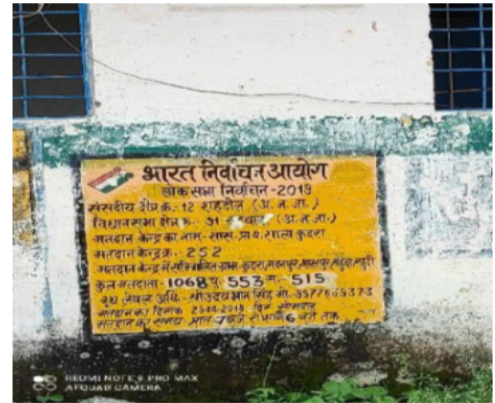 भारत निर्वाचन आयोग
लोकसभा निर्वाचन-2019
संसदीय क्षेत्र क्र.- 12 शहडोल (अ.ज.जा.)
विधानसभा क्षेत्र क्र.- (अ.ज.जा.)
मतदान केन्द्र का नाम- शास. प्रा. शाला कुदरा
मतदान केन्द्र क्र.- 252
मतदान केन्द्र में सम्मिलित ग्राम- कुदरा,
कुल मतदाता- 1068 पु. 553 म.- 515
उदयभान सिंह मो.
मतदान का दिनांक दिन सोमवार
मतदान का समय प्रातः 7 बजे से शाम 6 बजे तक
REDMI NOTE 9 PRO MAX
AI QUAD CAMERA